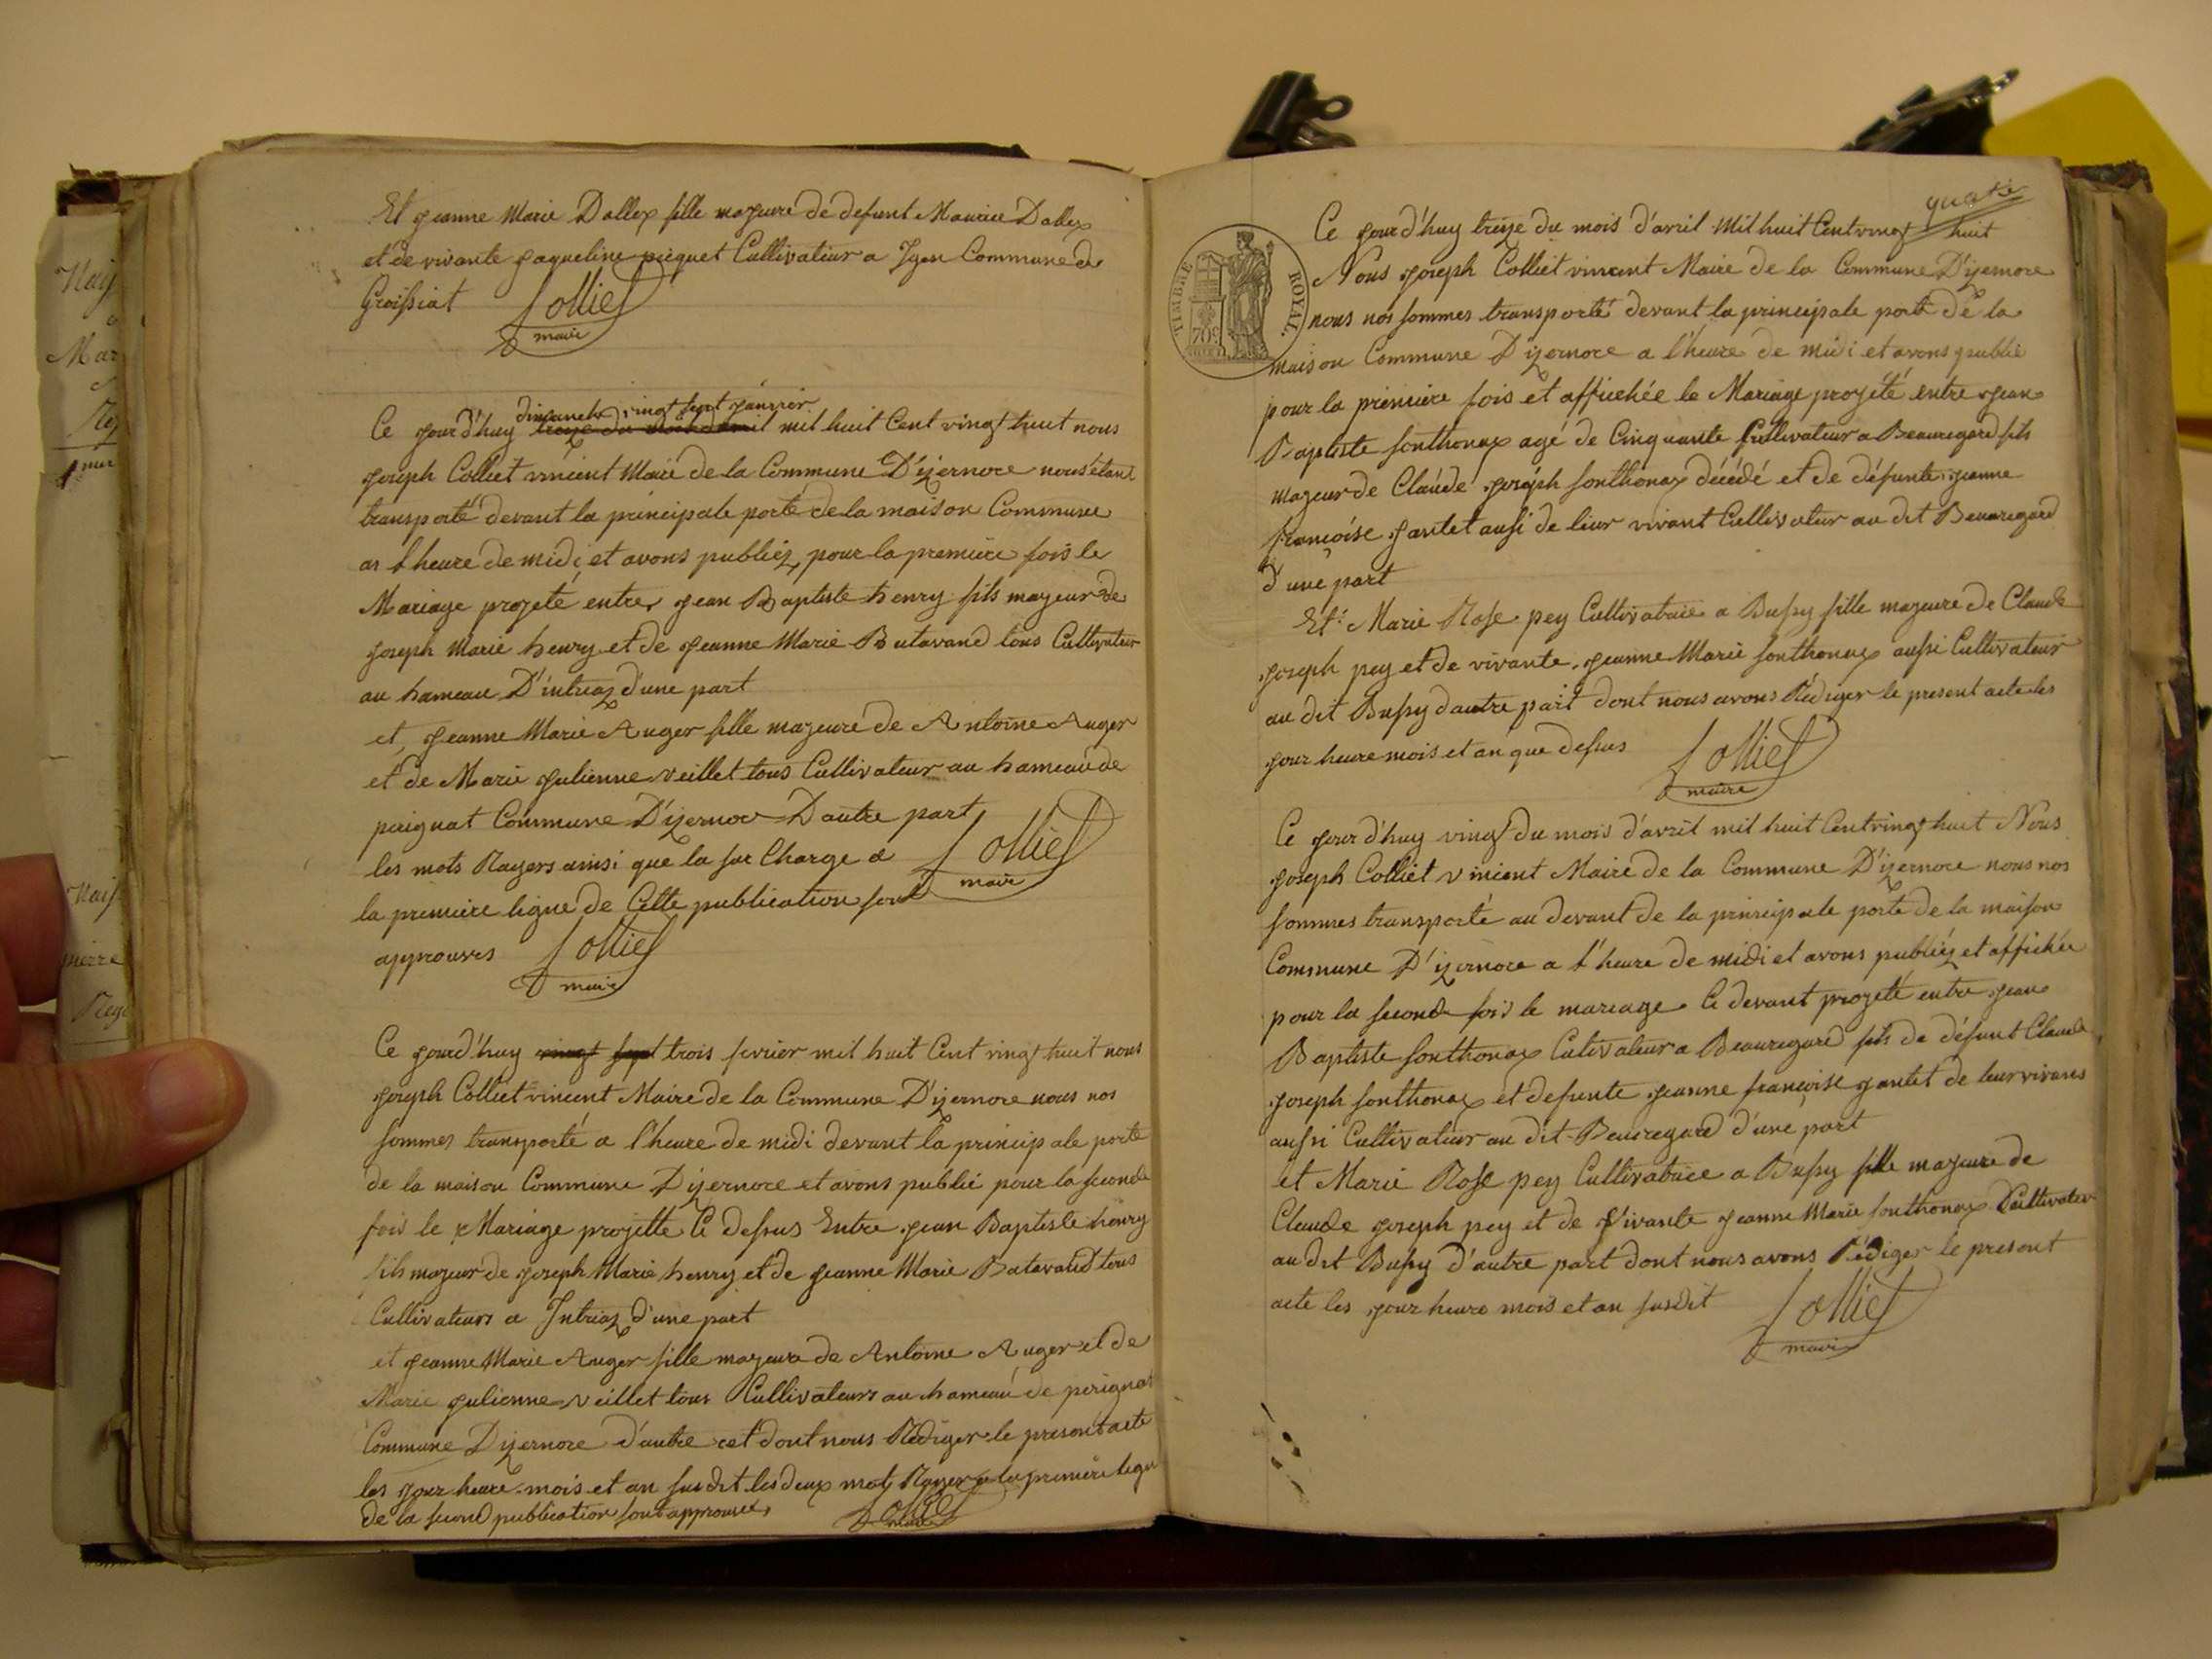 Et jeanne Marie Dallex fille majeure de defunt Maurice Dallex
et de vivante jaqueline piequet Cultivateur a Igon Commune de
Groissiat Colliet
maire
dimanche vingt sept janvier
Ce jourd'huy treize du mois d'avril mil huit Cent vingt huit nous
joseph Colliet vincent Maire de la Commune D'izernore nous étant
transporté devant la principale porte de la maison Commune
as l'heure de midi et avons publiéz pour la premiere fois le
Mariage projeté entre jean Baptiste henry fils majeur de
joseph Marie henry et de jeanne Marie Butavand tous Cultivateur
au hameau D'intriaz d'une part
et jeanne Marie Auger fille majeure de Antoine Auger
et de Marie julienne veillet tous Cultivateur au hameau de
perignat Commune D'izernore D'autre part
les mots Rayers ainsi que la sur Charge a Colliet
maire
la premiere ligne de Cette publication sont
approuves Colliet
maire
Ce jourd'huy vingt sept trois fevrier mil huit Cent vingt huit nous
joseph Colliet vincent Maire de la Commune D'izernore nous nos
sommes transporté a l'heure de midi devant la principale porte
de la maison Commune Dizernore et avons publié pour la seconde
fois le Mariage projetté Ci dessus Entre jean Baptiste henry
fils majeur de joseph Marie henry et de jeanne Marie Batavand tous
Cultivateurs a Intriaz d'une part
et jeanne Marie Auger fille majeure de Antoine Auger et de
Marie julienne veillet tous Cultivateurs au hameau de perignat
Commune Dizernore d'autre et dont nous Rediger le present acte
les jour heure mois et an susdit les deux mots Rayer a la premiere ligne
de la second publication sont approuves Colliet
maire
quatre
Ce jourd'huy treize du mois d'avril Mil huit Cent vingt huit
Nous joseph Colliet vincent Maire de la Commune D'izernore
nous nos sommes transporté devant la principale porte de la
maison Commune D'izernore a l'heure de midi et avons publié
pour la premiere fois et affichée le Mariage projété entre jean
Baptiste sonthonax agé de Cinquante Cultivateur a Beauregard fils
majeur de Claude joseph sonthonax décédé et de défunte jeanne
françoise gantet aussi de leur vivant Cultivateur au dit Beauregard
d'une part
Et Marie Rose pey Cultivatrice a Bussy fille majeure de Claude
joseph pey et de vivante jeanne Marie sonthonax aussi Cultivateur
au dit Bussy d'autre part dont nous avons Rédiger le present acte les
jour heure mois et an que dessus Colliet
maire
Ce jourd'huy vingt du mois d'avril mil huit Cent vingt huit Nous
joseph Colliet vincent Maire de la Commune D'izernore nous nos
sommes transporté au devant de la principale porte de la maison
Commune D'izernore a l'heure de midi et avons publiéz et affichée
pour la seconde fois le mariage Ci devant projeté entre jean
Baptiste sonthonax Cutivateur a Beauregard fils de défunt Claude
joseph sonthonax et defunte jeanne françoise gantet de leur vivans
aussi Cultivateur au dit Beauregard d'une part
et Marie Rose pey Cultivatrice a Bussy fille majeure de
Claude joseph pey et de Vivante jeanne Marie sonthonax Cultivateur
au dit Bussy d'autre part dont nous avons Rédiger le present
acte les jour heure mois et an susdit Colliet
maire
TIMBRE ROYAL
70c